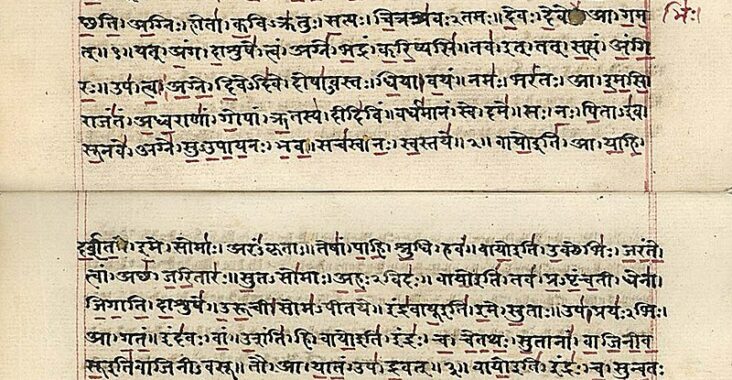 छति।अग्निः।होता।कविऽक्रतुः।सत्यः।चित्रश्रवःऽतमः॥देवः।देवे आ।गम
भिः।
त्॥१॥यत्।अंग।दाशुषे।त्वं।अग्ने।भद्रं।करिष्यसि॥तव।इत्।तत्।सत्यं।अंगि
रः॥उप।त्वा।अग्ने।दिवेऽदिवे।दोषाऽवस्तः।धिया।वयं॥नमः।भरंतः।आ।इमसि
राजंतं।अध्वराणां।गोपां।ऋतस्य।दीदिविं॥वर्धमानं।स्वे।दमे॥सः।नः।पिताऽइव
सूनवे।अग्ने।सुऽउपायनः।भव॥सचस्व।नः।स्वस्तये॥२॥वायो इति।आ।याहि
दर्शत।इमे।सोमाः।अरंऽकृताः॥तेषां।पाहि।श्रुधि।हवं॥वायो इति।उक्थेभिः।जरंते
त्वां।अच्छ।जरितारः॥सुतऽसोमाः।अहःऽविदः॥वायो इति।तव।प्रऽपृंचती।धेना
जिगाति।दाशुषे॥उरूची।सोमऽपीतये॥इंद्रवायू इति।इमे।सुताः॥उप।प्रयःऽभिः।
आ।गतं॥इंदवः।वां।उशंति।हि॥वायो इति।इंद्रः।च।चेतथः।सुतानां।वाजिनीव
सू इति वाजिनीऽवसू॥तौ।आ।यातं।उप।द्रवत्॥३॥वायो इति।इंद्रः।च।सुन्वतः